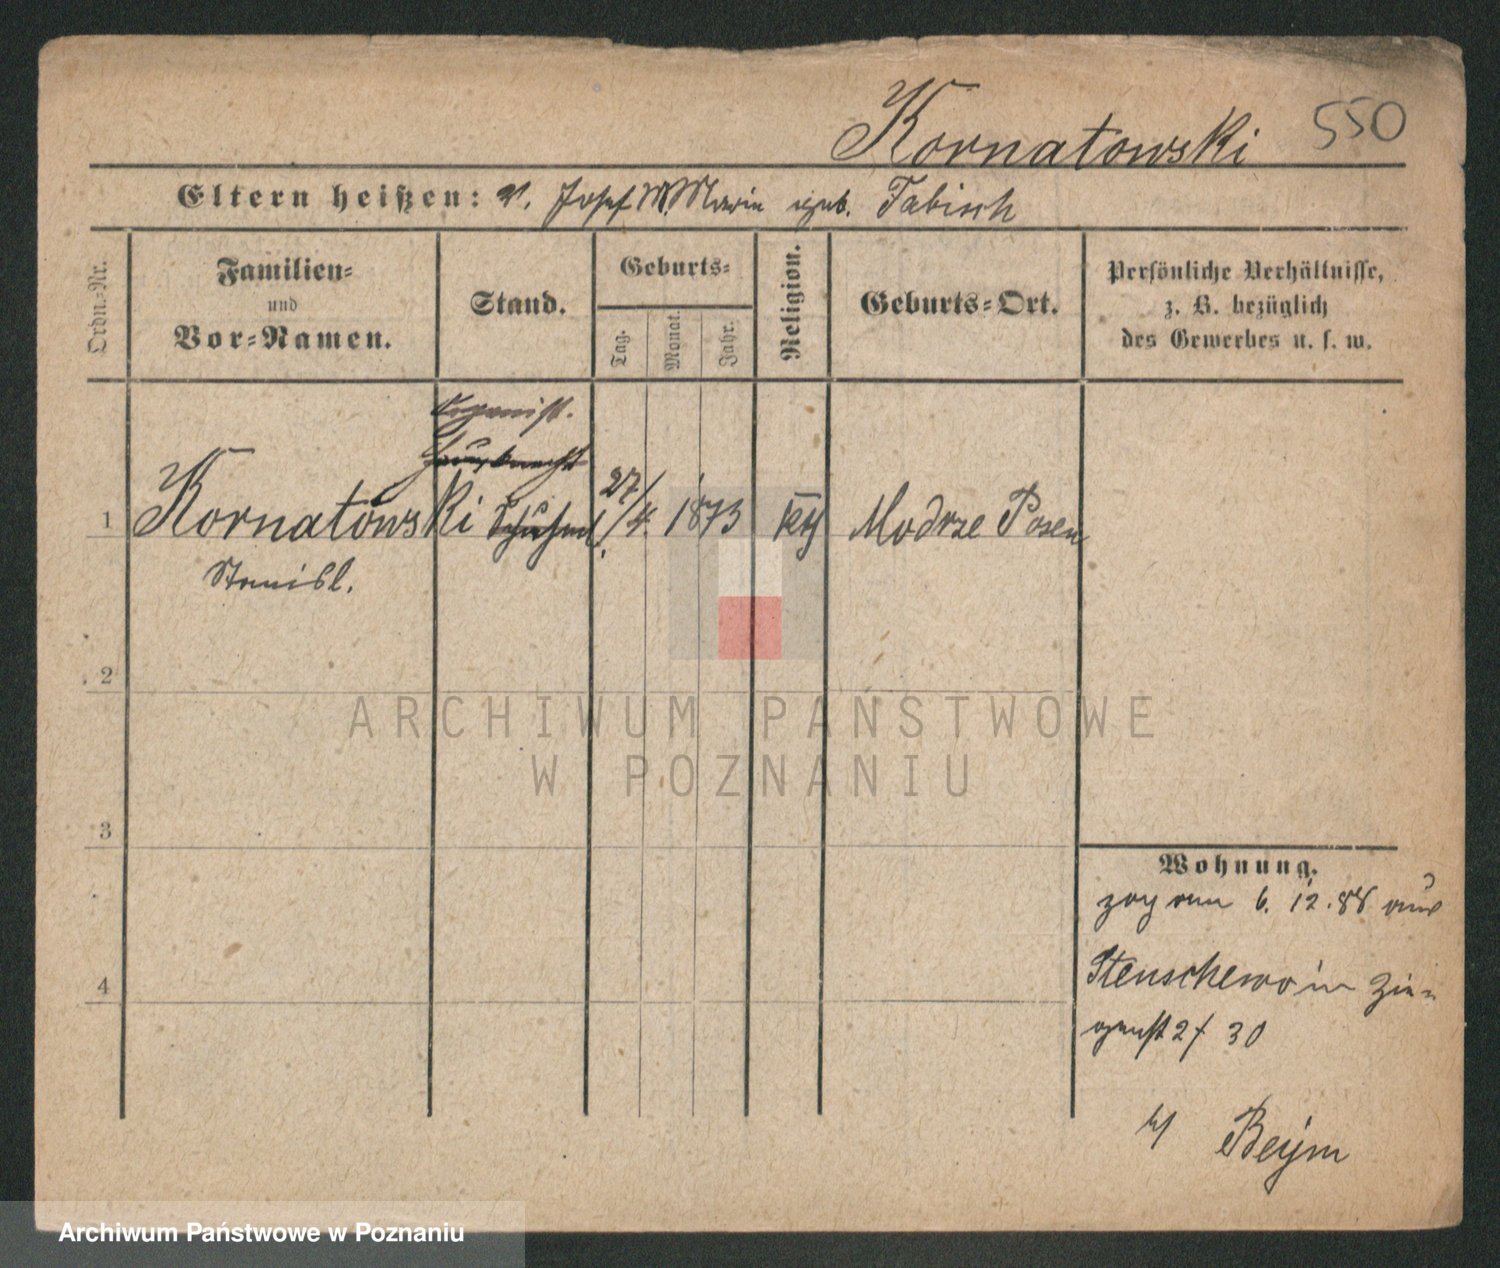 Kornatowski 550
Eltern heißen: V. Josef M. Marie geb. Fabisch
Ordn.-Nr.
Familien-
und
Vor-Namen.
Stand.
Geburts-
Tag.
Monat.
Jahr.
Religion.
Geburts-Ort.
Persönliche Verhältnisse,
z. B. bezüglich
des Gewerbes u. s. w.
Organist.
Hausknecht
1 Kornatowski 27/4. 1873 kth Modrze Posen
Stanisl.
2
3
4
Wohnung.
zog am 6. 12. 88 aus
Stenschewo in Zie-
genst 2 / 30
b/ Beym
ARCHIWUM PAŃSTWOWE
W POZNANIU
Archiwum Państwowe w Poznaniu